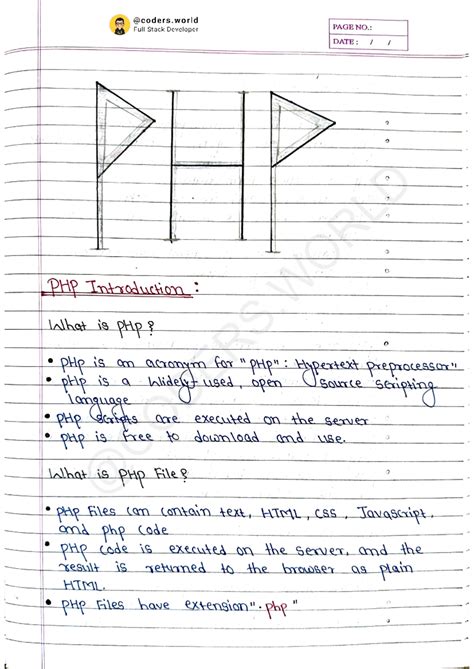 @coders.world
Full Stack Developer
PAGE NO.:
DATE: / /
PHP
PHP Introduction :
What is PHP?
• PHP is an acronym for "PHP": Hypertext preprocessor"
• PHP is a widely used, open source scripting
language
• PHP scripts are executed on the server
• PHP is free to download and use.
What is PHP File?
• PHP Files can contain text, HTML, CSS, Javascript,
and php code
• PHP code is executed on the server, and the
result is returned to the browser as plain
HTML.
• PHP Files have extension ".php"
@CODERS.WORLD